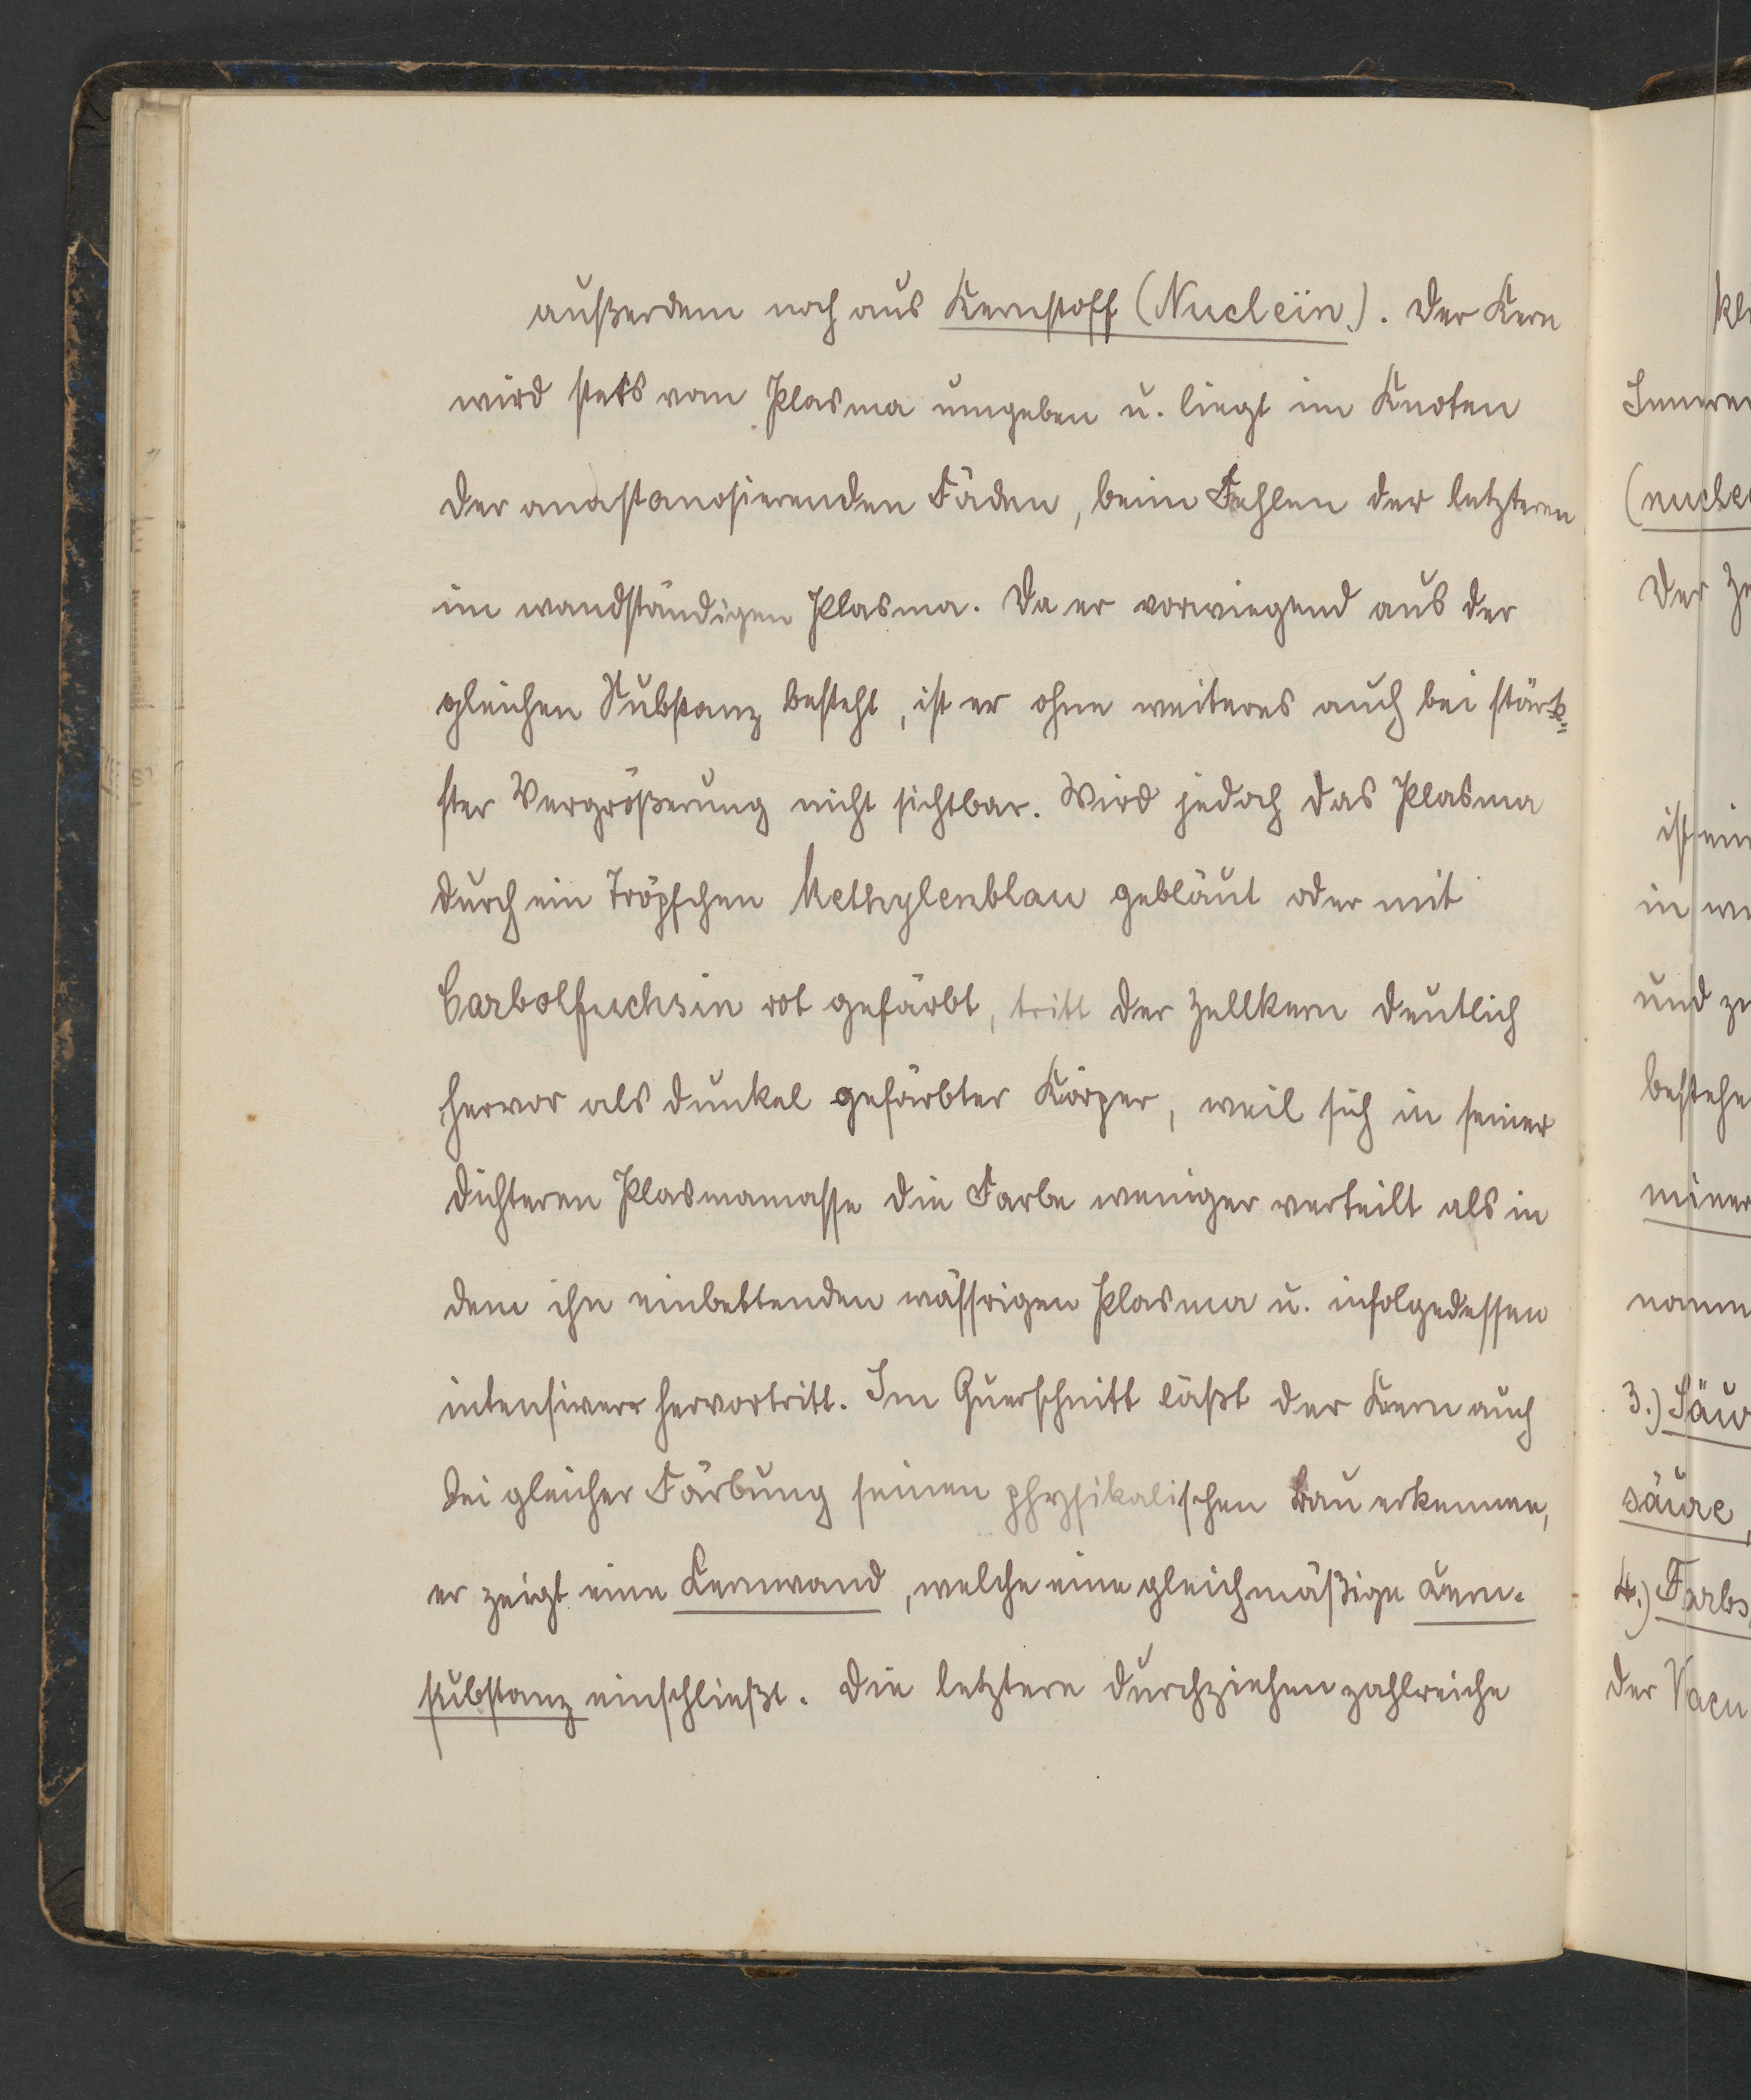 außerdem noch aus Kernstoff (Nucleïn). Der Kern
wird stets vom Plasma umgeben u. liegt im Knoten
der anastanosierenden Fäden, beim Fehlen der letzteren
im wandständigen Plasma. Da er vorwiegend aus der
gleichen Substanz besteht, ist er ohne weiteres auch bei stärk=
ster Vergrößerung nicht sichtbar. Wird jedoch das Plasma
durch ein Tröpfchen Methylenblau gebläut oder mit
Carbolfuchsin rot gefärbt, tritt der Zellkern deutlich
hervor als dunkel gefärbter Körper, weil sich in seiner
dichteren Plasmamasse die Farbe weniger verteilt als in
dem ihn einbettenden wässrigen Plasma u. infolgedessen
intensiver hervortritt. Im Querschnitt läßt der Kern auch
bei gleicher Färbung seinen physikalischen Bau erkennen,
er zeigt eine Kernwand, welche eine gleichmäßige Kern=
substanz einschließt. Die letztere durchziehen zahlreiche
(nucle
Der
ist ein
in
und
bestehe
miner
3.) Säur
säure,
4.) Farbs
der Vacu